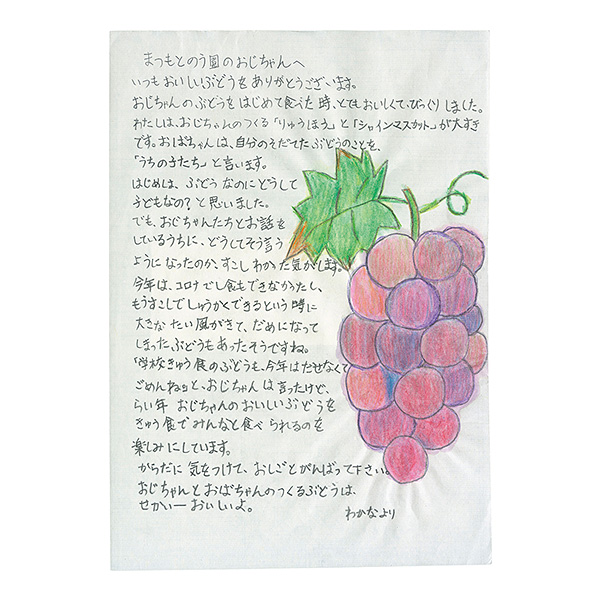 まつもとのう園のおじちゃんへ
いつもおいしいぶどうをありがとうございます。
おじちゃんのぶどうをはじめて食べた時、とてもおいしくて、びっくりしました。
わたしは、おじちゃんのつくる「りゅうほう」と「シャインマスカット」が大すき
です。おばちゃんは、自分のそだてたぶどうのことを、
「うちの子たち」と言います。
はじめは、ぶどうなのにどうして
子どもなの?と思いました。
でも、おじちゃんたちとお話を
しているうちに、どうしてそう言う
ようになったのか、すこしわかった気がします。
今年は、コロナでし食もできなかったし、
もうすこしでしゅうかくできるという時に
大きなたい風がきて、だめになって
しまったぶどうもあったそうですね。
「学校きゅう食のぶどうも、今年はだせなくて
ごめんね」と、おじちゃんは言ったけど、
らい年おじちゃんのおいしいぶどうを
きゅう食でみんなと食べられるのを
楽しみにしています。
からだに気をつけて、おしごとがんばって下さい。
おじちゃんとおばちゃんのつくるぶどうは、
せかい一おいしいよ。
わかなより